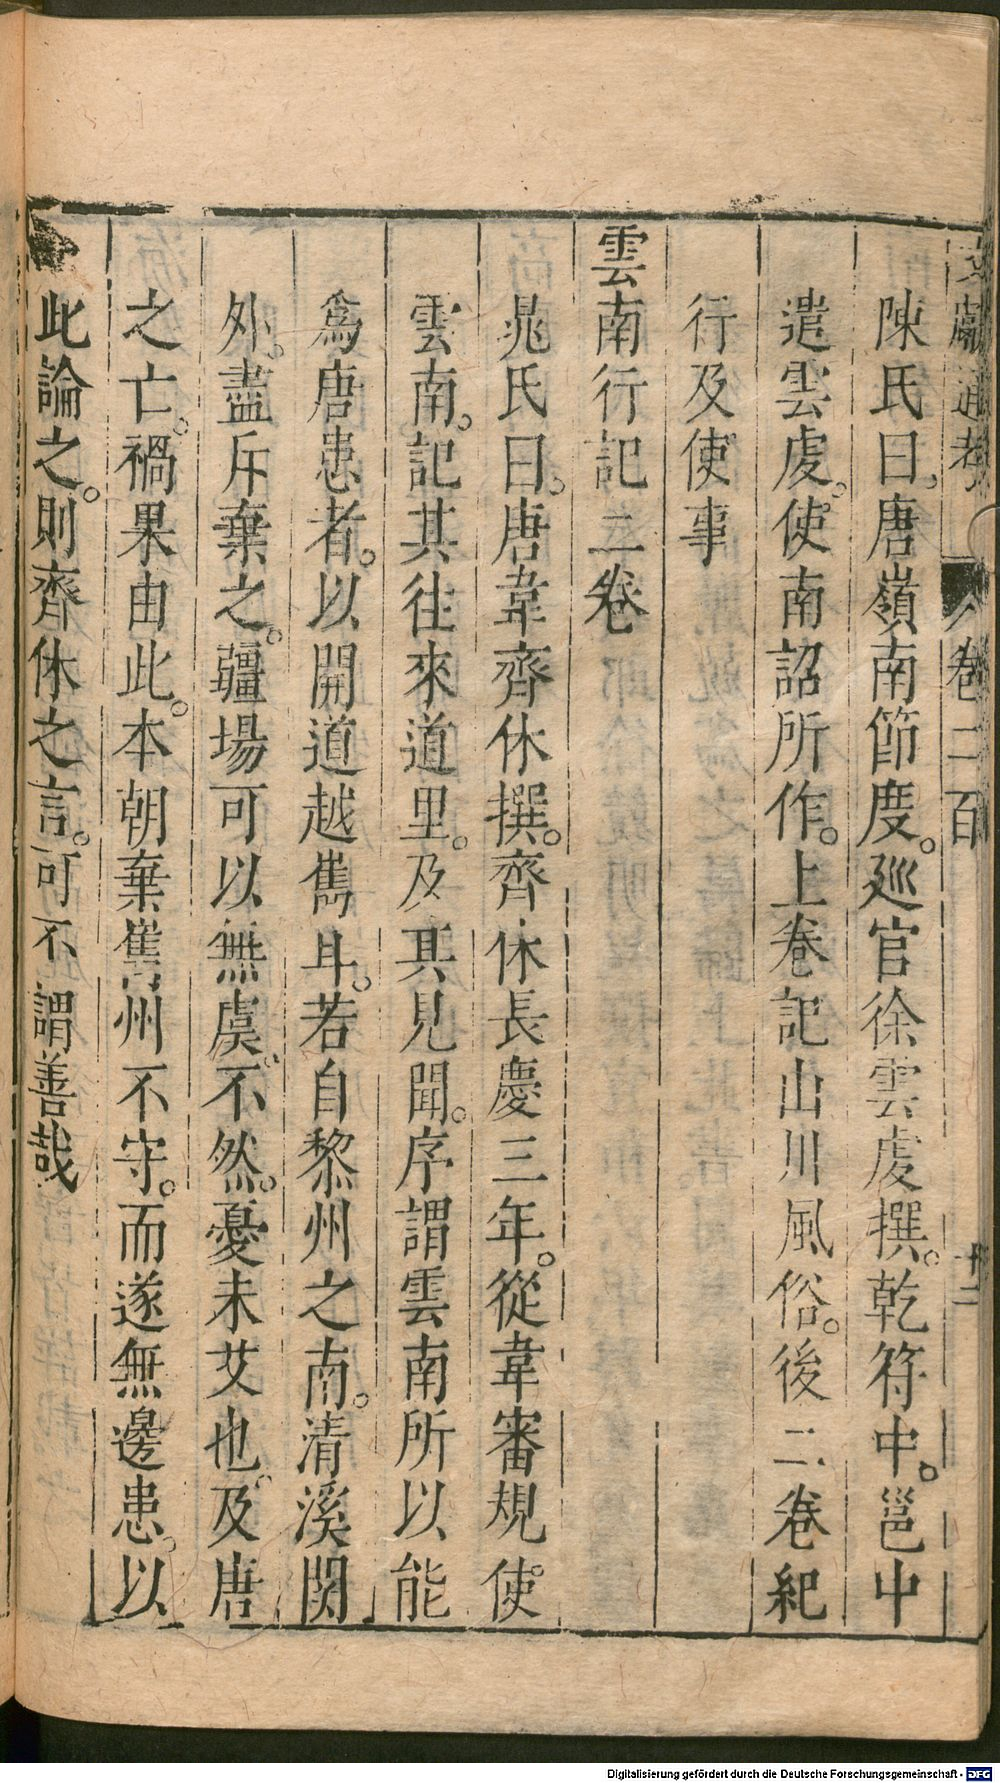 文獻通考 卷二百 十二
陳氏曰。唐嶺南節度。廵官徐雲虔撰。乾符中。邕中
遣雲虔。使南詔所作。上卷記山川風俗。後二卷紀
行及使事
雲南行記二卷
晁氏曰。唐韋齊休撰。齊休長慶三年。從韋審規使
雲南。記其往來道里。及其見聞。序謂雲南所以能
爲唐患者。以開道越雋耳。若自黎州之南。清溪関
外。盡斥棄之。疆場可以無虞。不然。憂未艾也。及唐
之亡。禍果由此。本朝棄雋州不守。而遂無邊患。以
此論之。則齊休之言。可不謂善哉
Digitalisierung gefördert durch die Deutsche Forschungsgemeinschaft - DFG